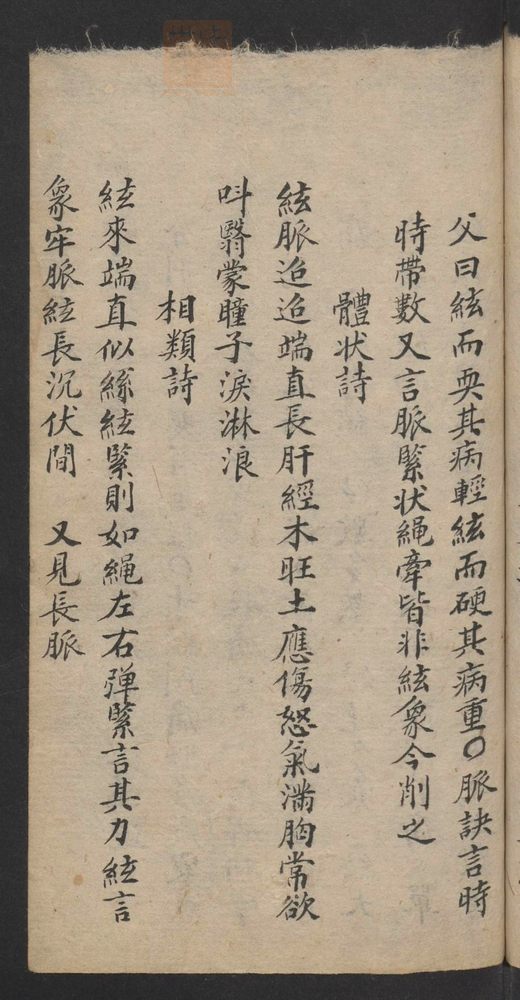 父曰絃而耎其病輕絃而硬其病重〇脈訣言時
時帶數又言脈緊状繩牽皆非絃象今削之
體状詩
絃脈迢迢端直長肝經木旺土應傷怒氣滿胸常欲
呌翳蒙瞳子淚淋浪
相類詩
絃來端直似絲絃緊則如繩左右彈緊言其力絃言
象牢脈絃長沉伏間 又見長脈